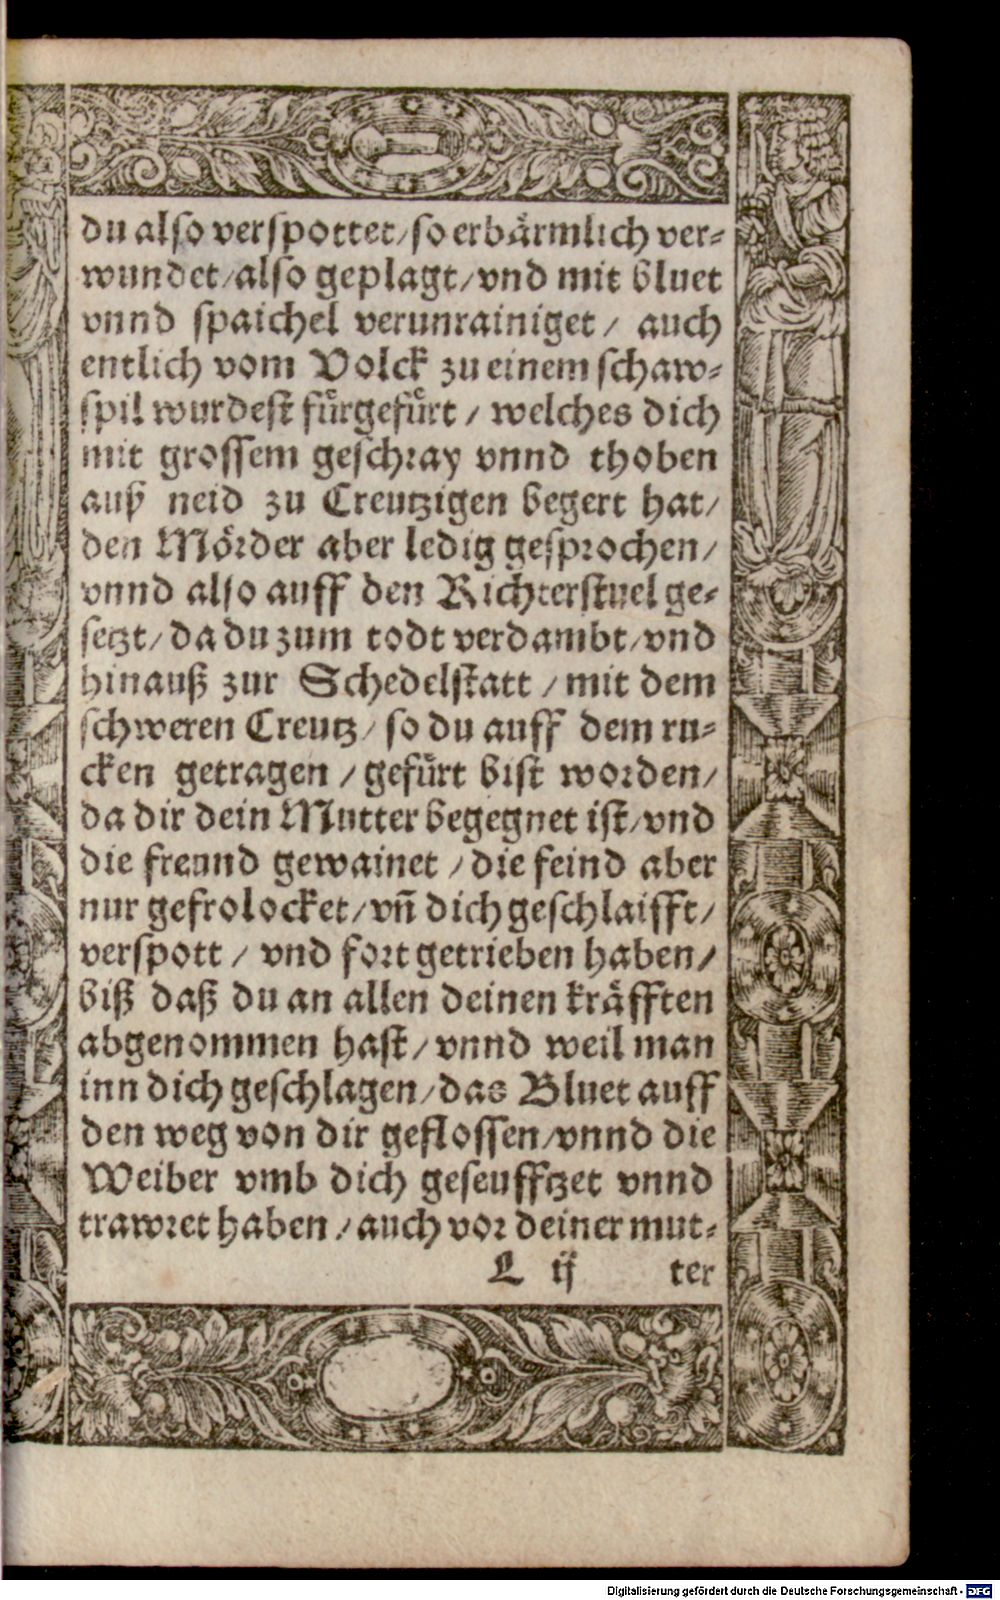 du also verspottet/ so erbärmlich ver⸗
wundet/ also geplagt/ vnd mit bluet
vnnd spaichel verunrainiget/ auch
entlich vom Volck zu einem schaw⸗
spil wurdest fürgefürt/ welches dich
mit grossem geschray vnnd thoben
auß neid zu Creutzigen begert hat/
den Mörder aber ledig gesprochen/
vnnd also auff den Richterstuel ge⸗
setzt/ da du zum todt verdambt/ vnd
hinauß zur Schedelstatt/ mit dem
schweren Creutz/ so du auff dem ru⸗
cken getragen/ gefürt bist worden/
da dir dein Mutter begegnet ist/ vnd
die freund gewainet/ die feind aber
nur gefrolocket/ vñ dich geschlaifft/
verspott/ vnd fort getrieben haben/
biß daß du an allen deinen kräfften
abgenommen hast/ vnnd weil man
inn dich geschlagen/ das Bluet auff
den weg von dir geflossen/ vnnd die
Weiber vmb dich geseufftzet vnnd
trawret haben/ auch vor deiner mut⸗
L ij ter
Digitalisierung gefördert durch die Deutsche Forschungsgemeinschaft - DFG